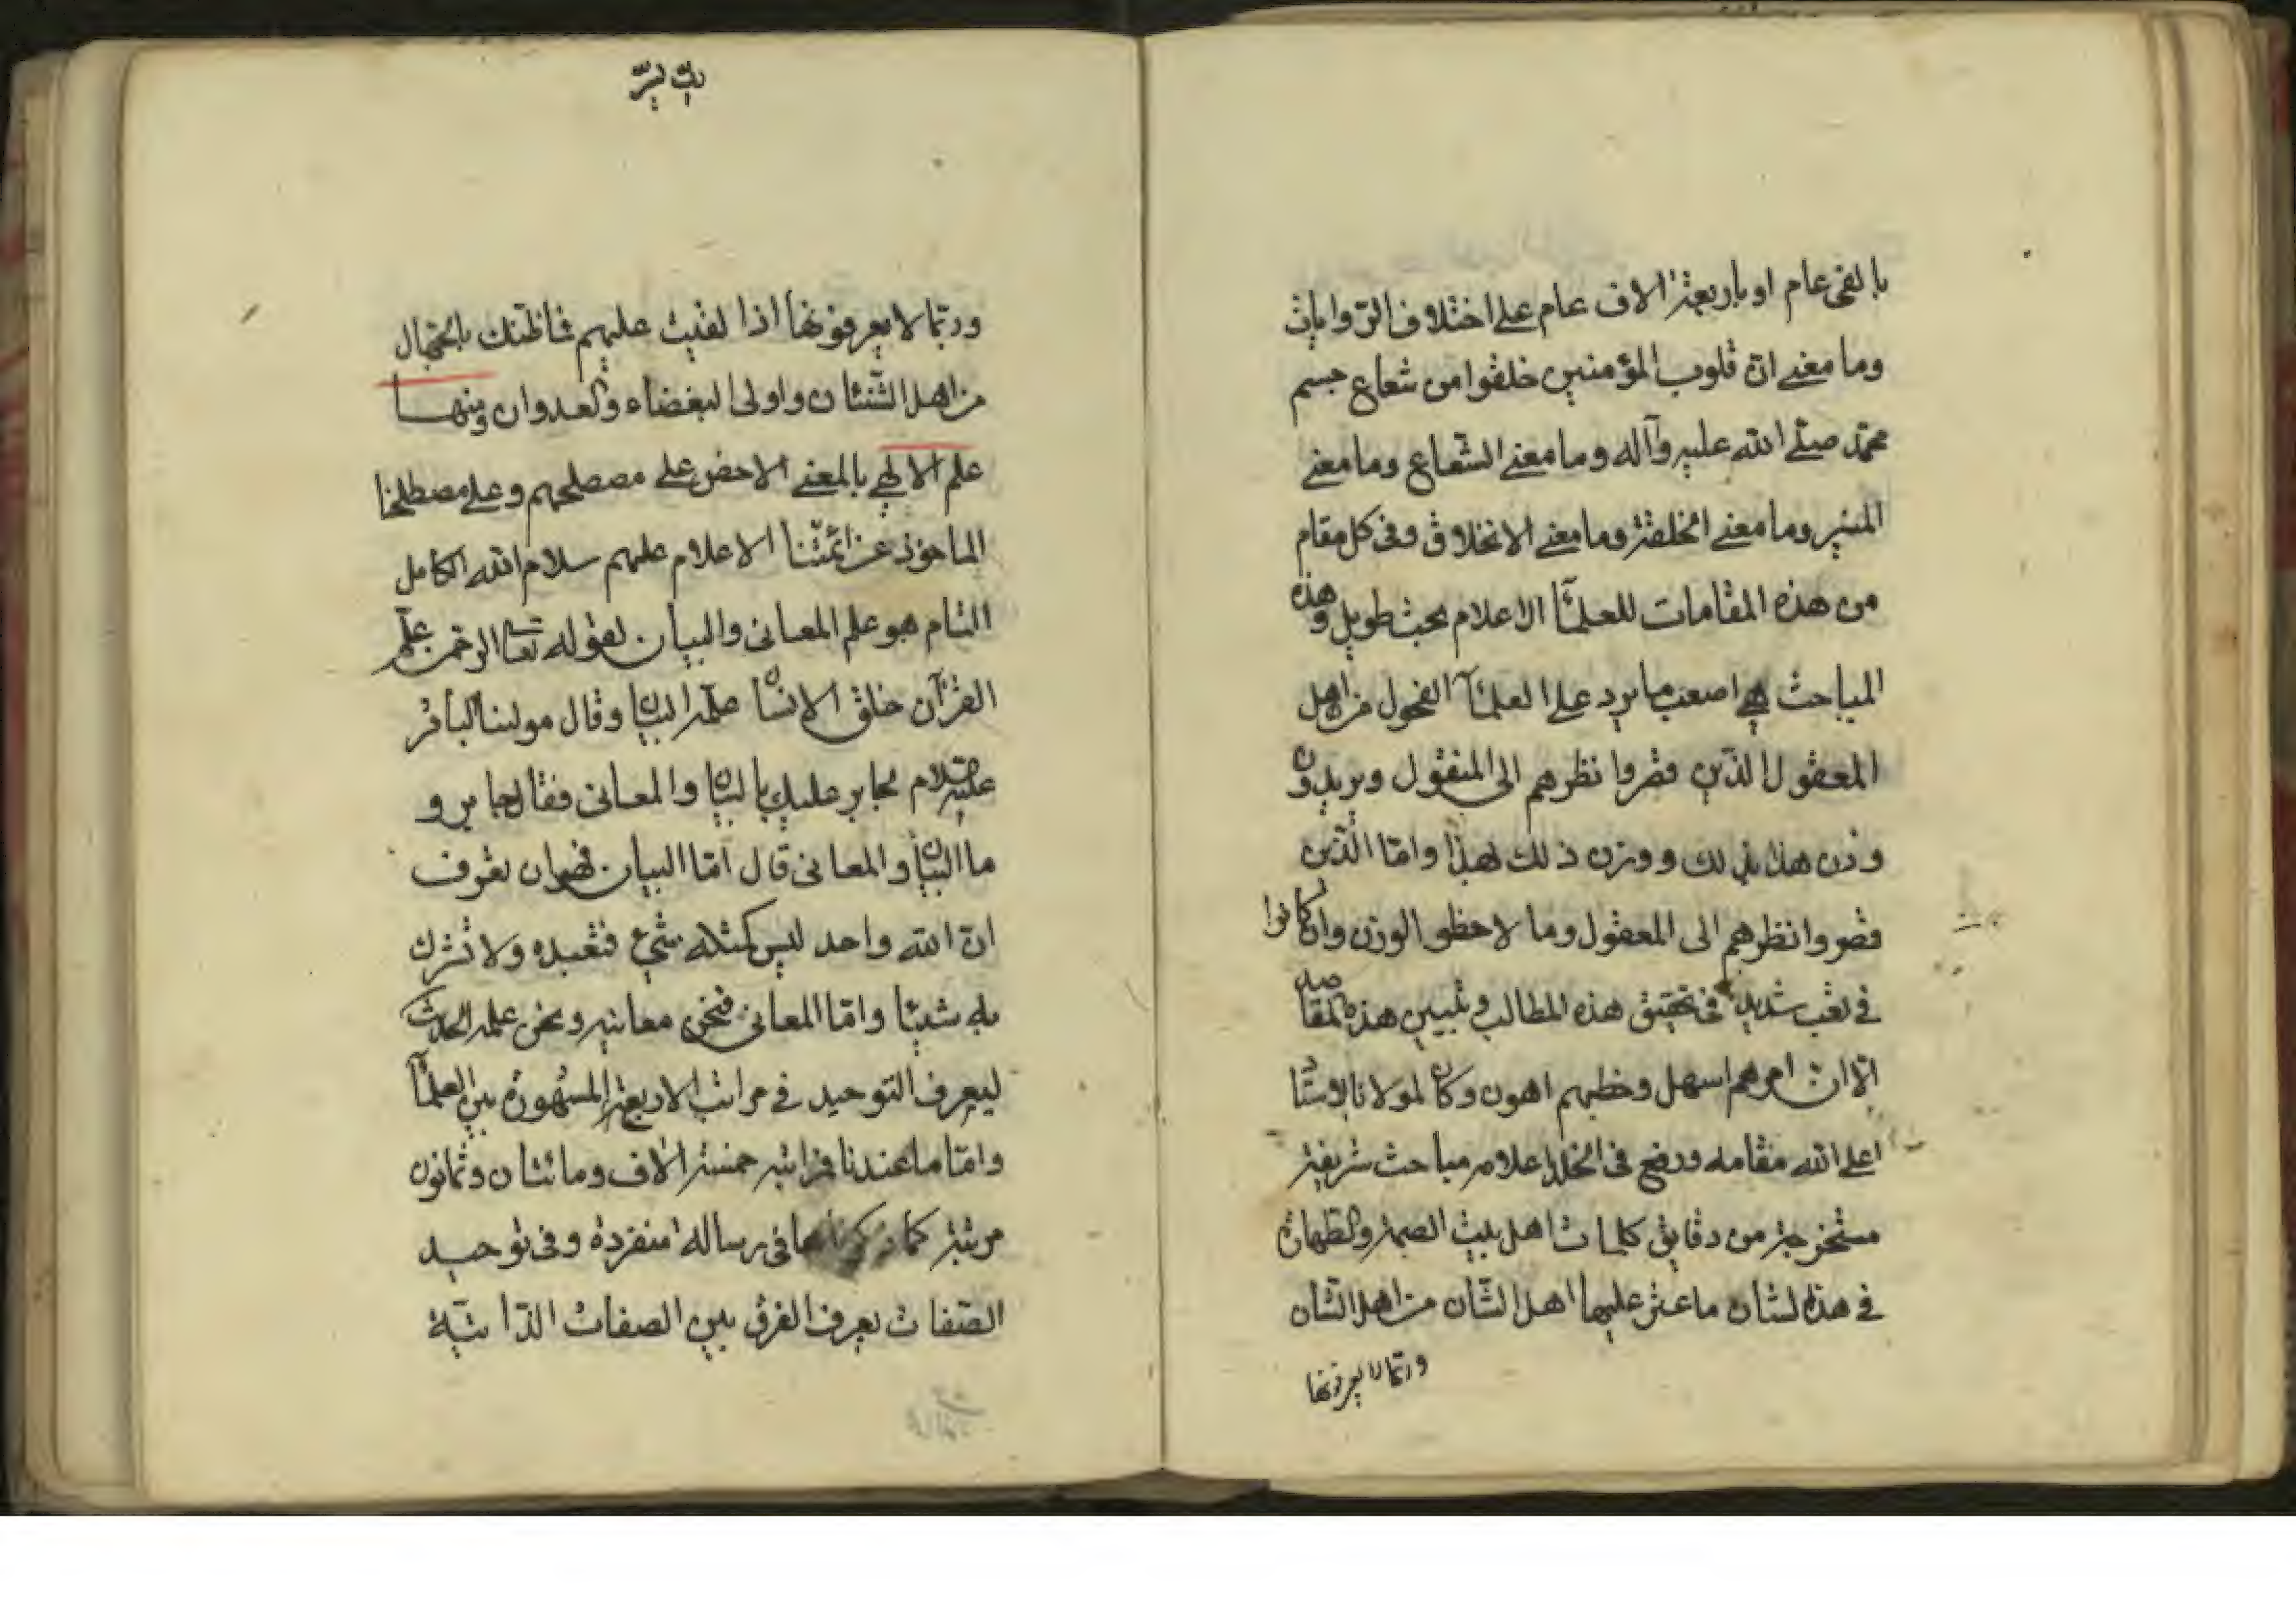 بالفی عام او باربعة الاف عام علی اختلاف الروایات
وما معنی ان قلوب المؤمنین خلقوا من شعاع جسم
محمد صلی الله علیه وآله وما معنی الشعاع وما معنی
المنیر وما معنی الخلقة وما معنی الانخلاق وفی کل مقام
من هذه المقامات للعلمآ الاعلام بحث طویل وهذه
المباحث هی اصعب ما یرد علی العلمآ الفحول من اهل
المعقول الذین قصروا نظرهم الی المنقول ویریدون
وزن هذا بذلک ووزن ذلک لهذا واما الذین
قصروا نظرهم الی المعقول وما لاحظو الوزن وان کانوا
فی تعب شدید فی تحقیق هذه المطالب وتبیین هذه المقاصد
الا ان امرهم اسهل وخطبهم اهون وکان لمولانا
اعلی الله مقامه ورفع فی الخلد اعلامه مباحث شریفة
مستخرجة من دقایق کلمات اهل بیت العصمة والطهارة
فی هذا الشان ما عثر علیها اهل الشان من اهل الشان
وربما لا یعرفونها
وربما لا یعرفونها اذا لقیت علیهم فما ظنک بالجهال
من اهل الشنئان واولی البغضاء والعدوان ومنها
علم الالهی بالمعنی الاخص علی مصطلحهم وعلی مصطلحنا
الماخوذ عن ائمتنا الاعلام علیهم سلام الله الکامل
التام هو علم المعانی والبیان لقوله تعا الرحمن علم
القرآن خلق الانسان علمه البیان وقال مولینا الباقر
علیه السلام لجابر علیک بالبیان والمعانی فقال جابر و
ما البیان والمعانی قال اما البیان فهو ان تعرف
ان الله واحد لیس کمثله شیء فتعبده ولا تشرک
به شیئا واما المعانی فنحن معانیه ونحن علمه الحدیث
لیعرف التوحید فی مراتب الاربعة المشهورة بین العلمآ
واما ما عندنا فمراتبه خمسة الاف ومائتان وثمانون
مرتبة کما ذکرناها فی رسالة منفردة وفی توحید
الصفات یعرف الفرق بین الصفات الذاتیة